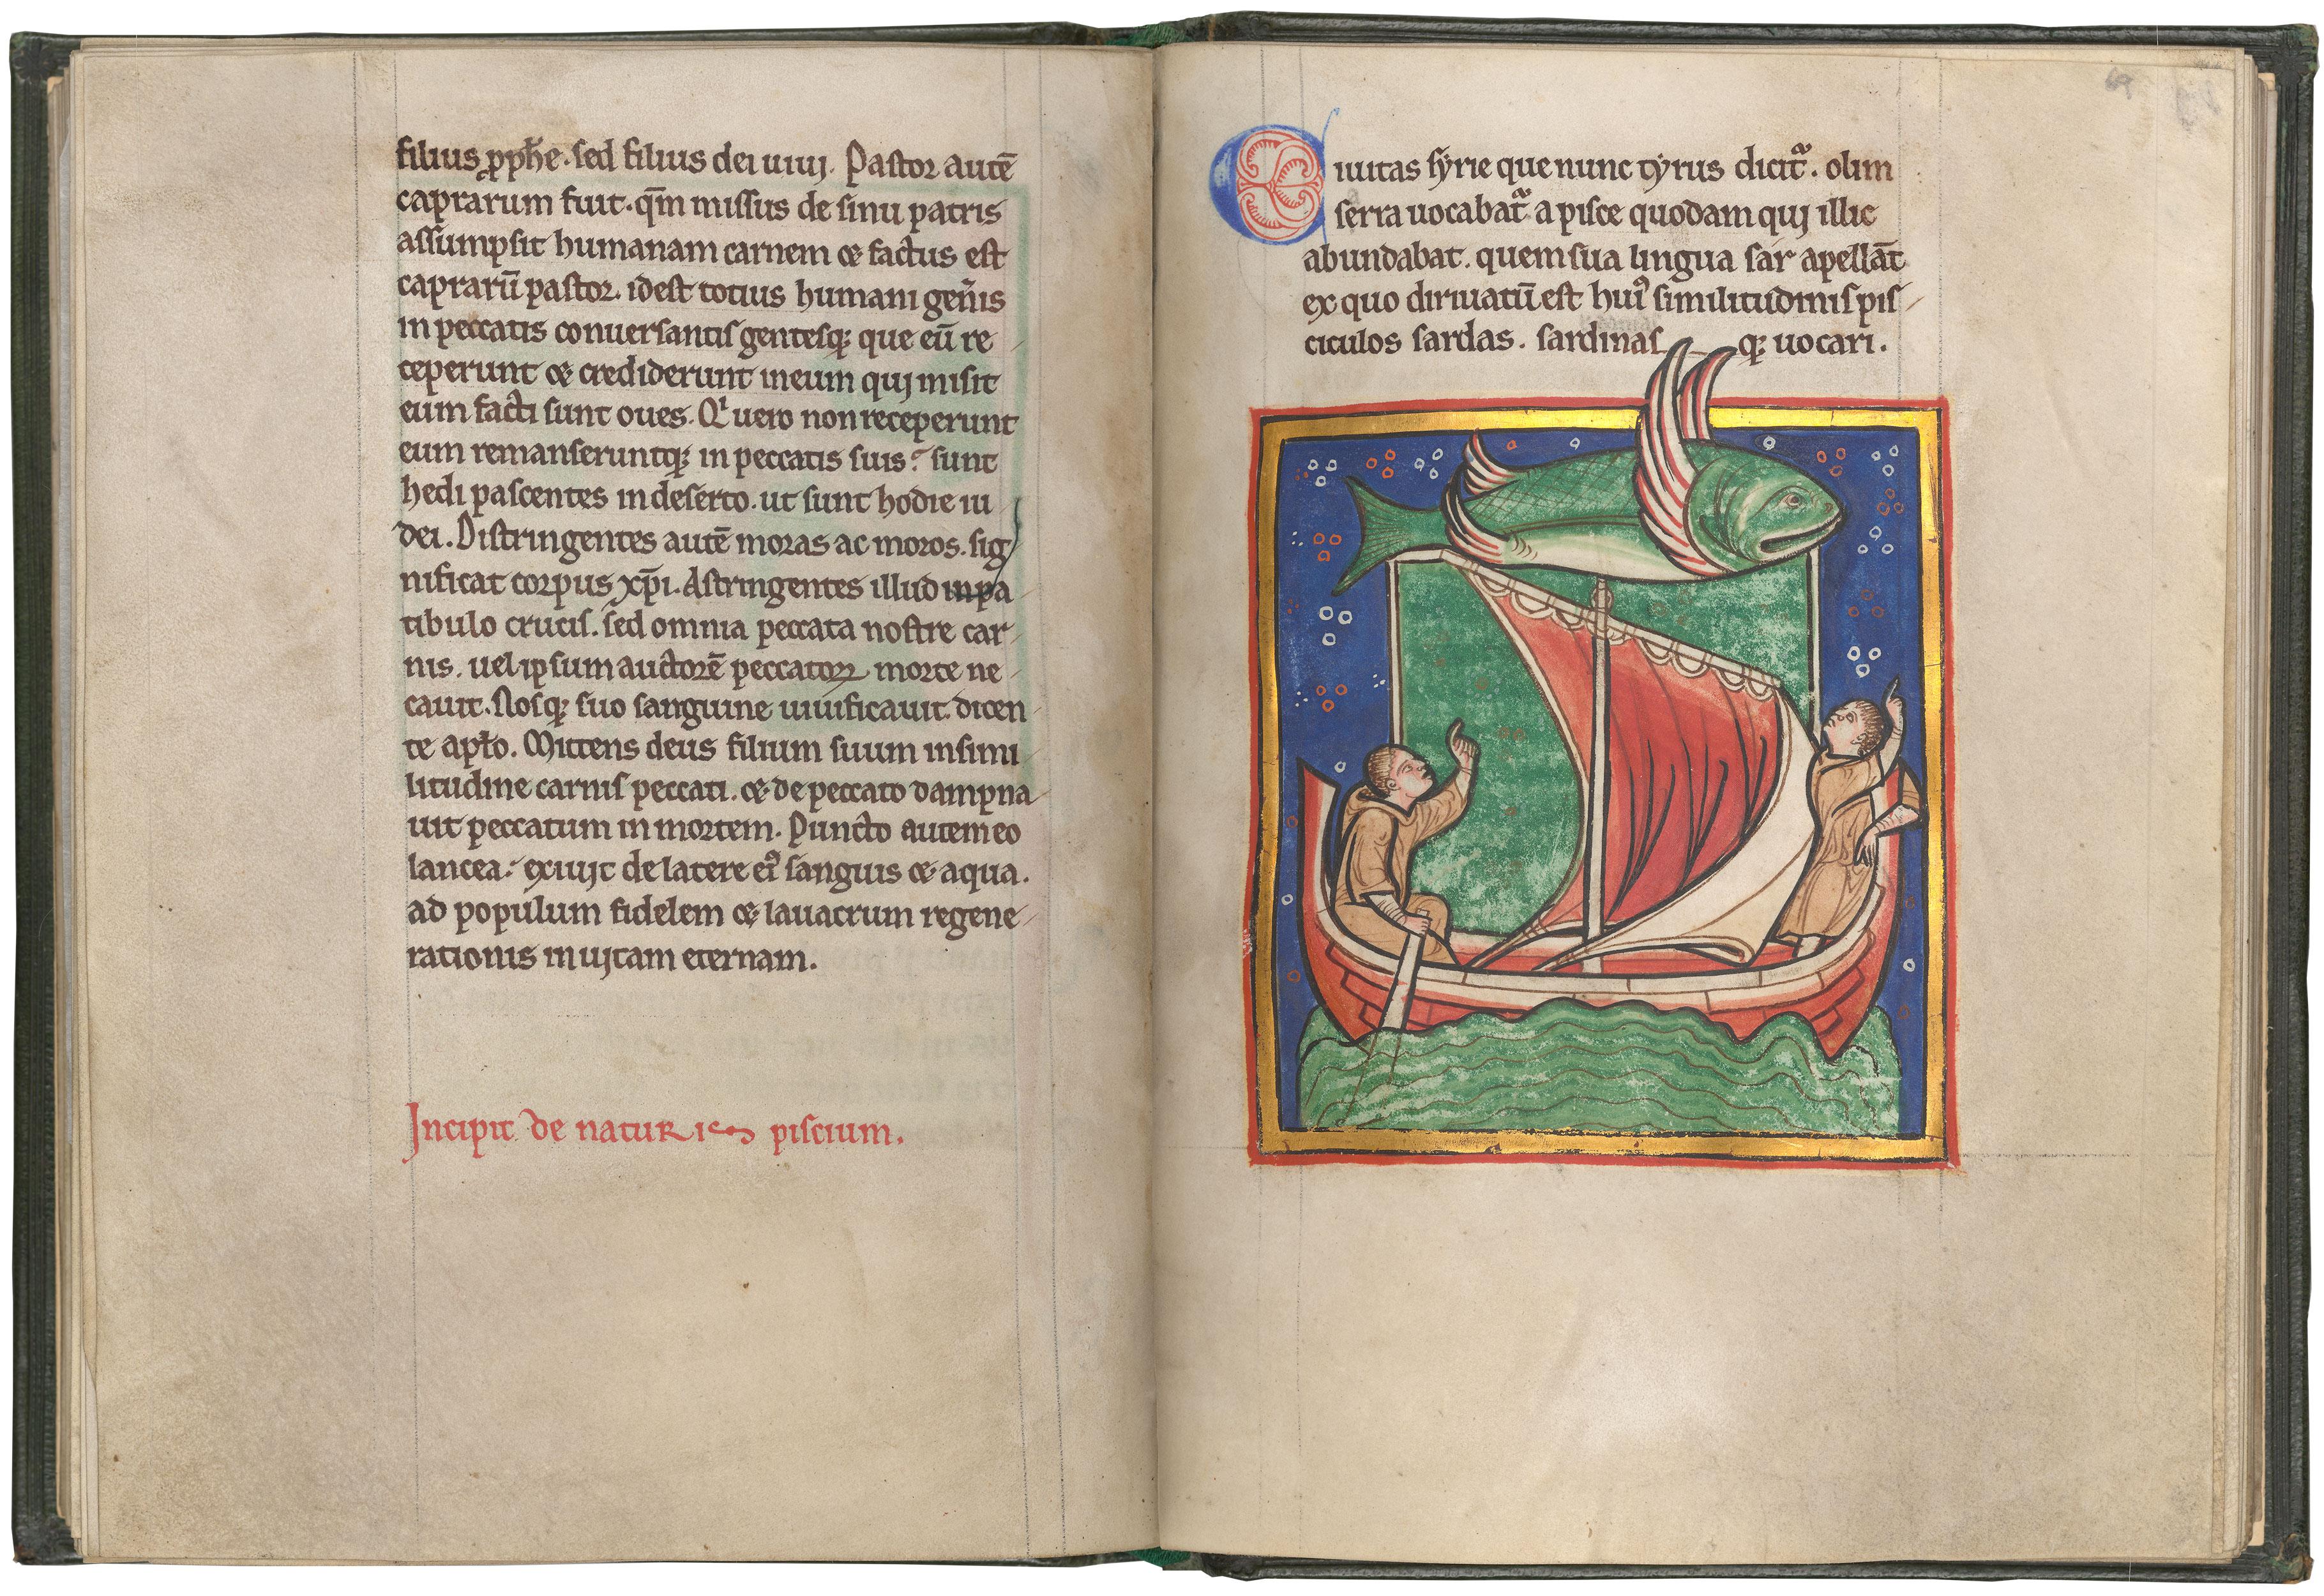 filius ꝓph̄e. sed filius dei uiuj. Pastor autē
caprarum fuit. qm̄ missus de sinu patris
assumpsit humanam carnem ⁊ factus est
caprarū pastor. idest totius humani gen̄is
in peccatis conuersantis gentesq; que eū re
ceperunt ⁊ crediderunt in eum quj misit
eum facti sunt oues. Qⁱ uero non receperunt
eum remanseruntq; in peccatis suis: sunt
hedi pascentes in deserto. ut sunt hodie iu
dei. Distringentes autē moras ac moros. sig
nificat corpus xp̄i. Astringentes illud inpa
tibulo crucis. sed omnia peccata nostre car
nis. uel ipsum auctorē peccatoꝝ morte ne
cauit. Nosq; suo sanguine uiuificauit. dicen
te apł̄o. Mittens deus filium suum insimi
litudine carnis peccati. ⁊ de peccato dampna
uit peccatum in mortem. Puncto autem eo
lancea: exiujt de latere eiꝰ sanguis ⁊ aqua.
ad populum fidelem ⁊ lauacrum regene
rationis in ujtam eternam.
Incipit de naturis piscium.
Ciuitas syrie que nunc tyrus dicitᷓ. olim
serra uocabatᷓ a pisce quodam quj illic
abundabat. quem sua lingua sar apellāt
ex quo diriuatū est huiꝰ similitudinis pis
ciculos sardas. sardinas q; uocari.